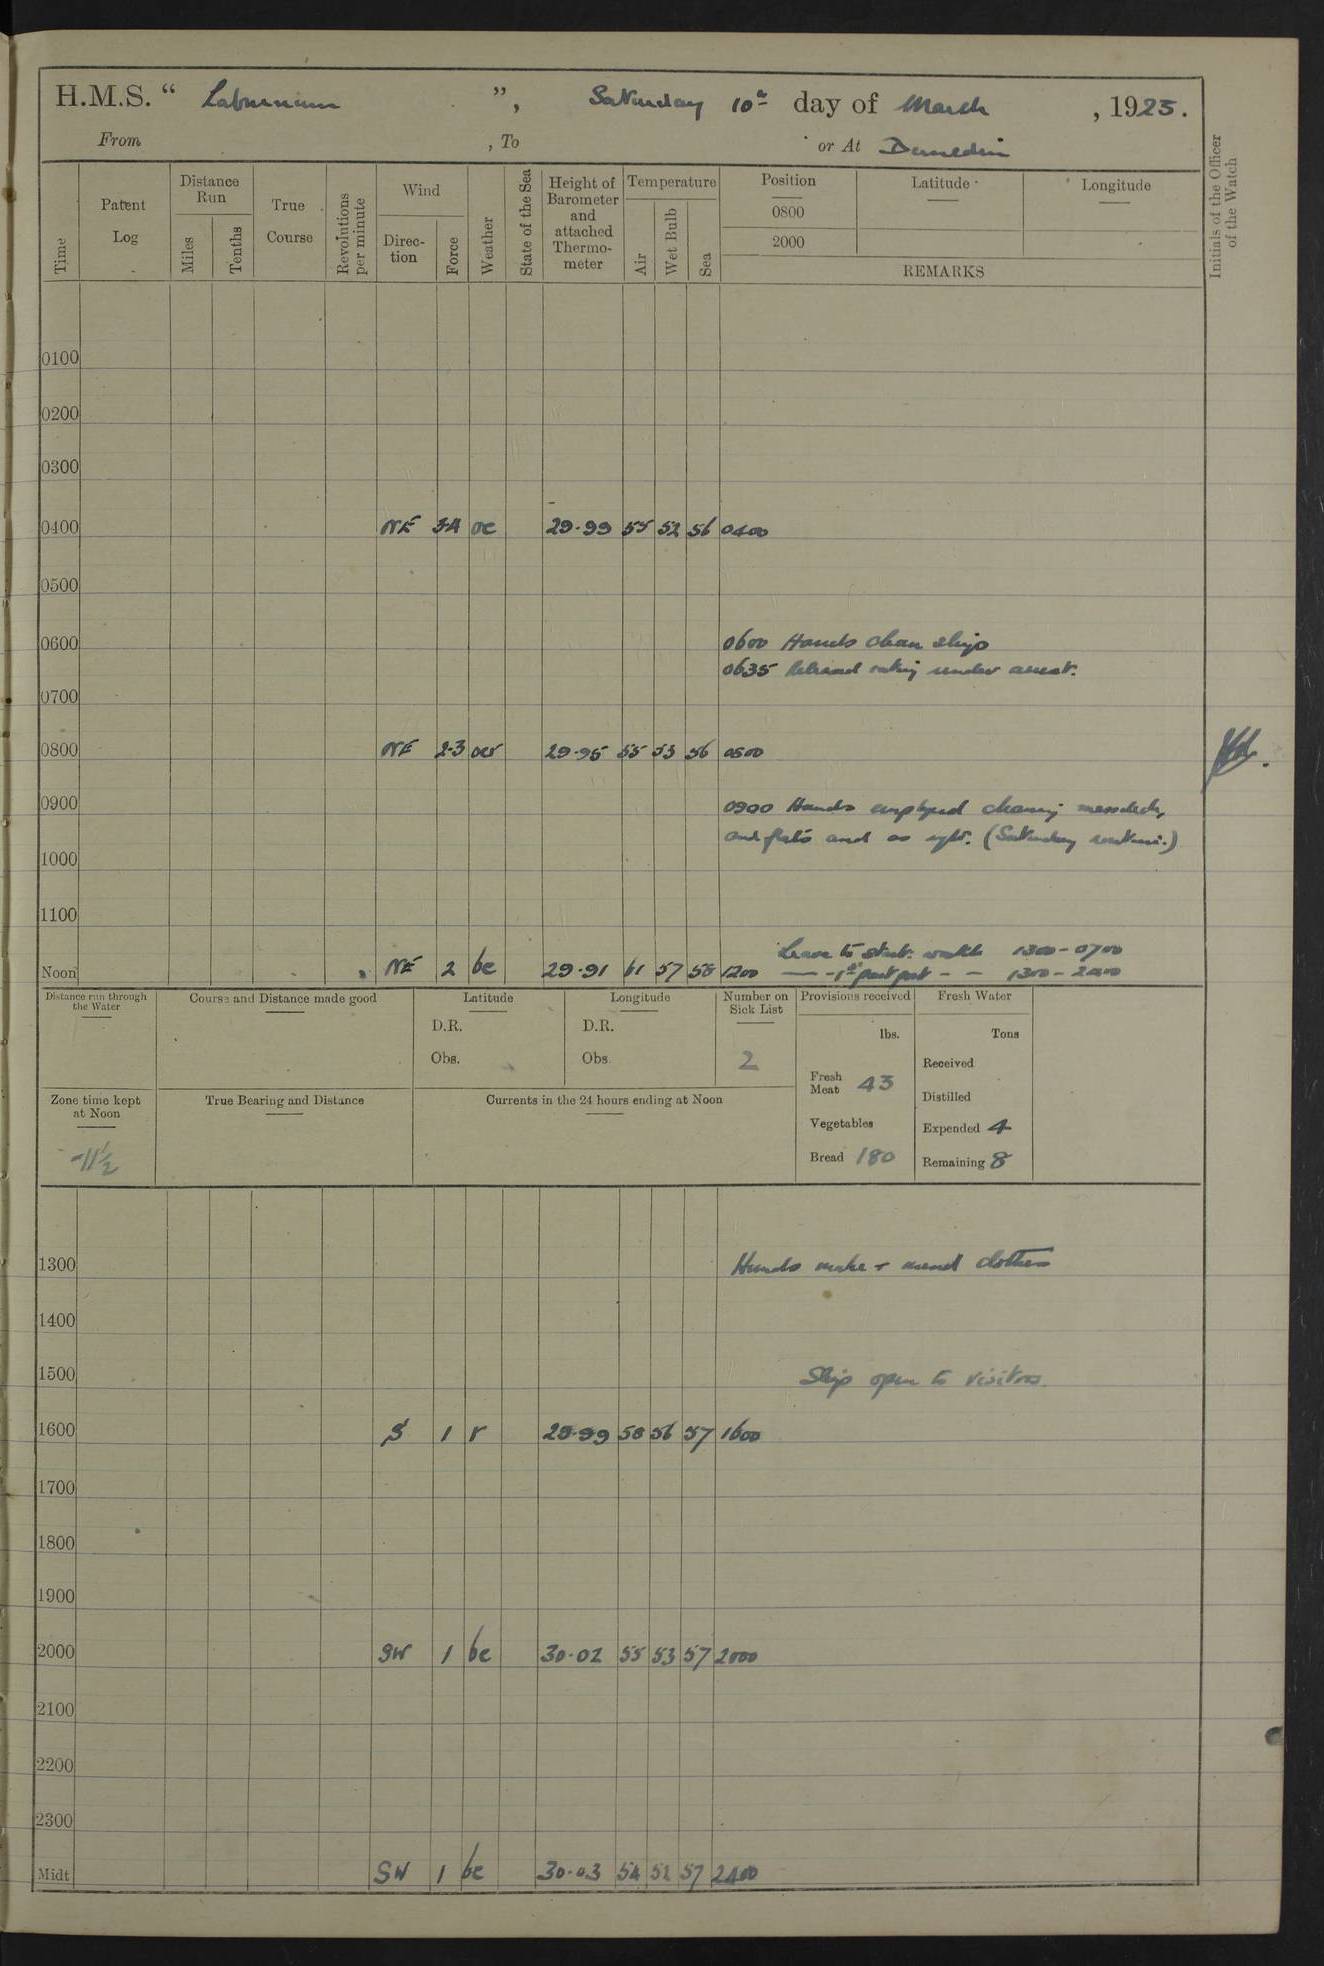 H.M.S. “ Laburnum ”, Saturday 10th day of March, 1923.
From , To or At Dunedin
Time
Patent Log
Distance Run
Miles
Tenths
True Course
Revolutions per minute
Wind
Direc-tion
Force
Weather
State of the Sea
Height of Barometer and attached Thermo-meter
Temperature
Air
Wet Bulb
Sea
Position
0800
2000
Latitude
Longitude
REMARKS
Initials of the Officer of the Watch
0100
0200
0300
0400 NE 3-4 oc 29.99 55 52 56 0400
0500
0600 0600 Hands clean ship
0635 Released rating under arrest.
0700
0800 NE 2-3 29.95 55 53 56 0800
0900 0900 Hands employed cleaning messdeck,
and flats and as reqte. (Saturday routine.)
1000
1100
Leave to starb. watch 1300-0700
Noon NE 2 bc 29.91 61 57 58 1200 — - 1st part port - - 1300-2200
Distance run through the Water
Course and Distance made good
Latitude
D.R.
Obs.
Longitude
D.R.
Obs
Number on Sick List
2
Provisions received
lbs.
Fresh Meat 43
Vegetables
Bread 180
Fresh Water
Tons
Received
Distilled
Expended 4
Remaining 8
Zone time kept at Noon
-11½
True Bearing and Distance
Currents in the 24 hours ending at Noon
1300 Hands make + mend clothes
1400
1500 Ship open to visitors.
1600 S 1 r 29.99 58 56 57 1600
1700
1800
1900
2000 SW 1 bc 30.02 55 53 57 2000
2100
2200
2300
Midt SW 1 bc 30.03 54 52 57 2400